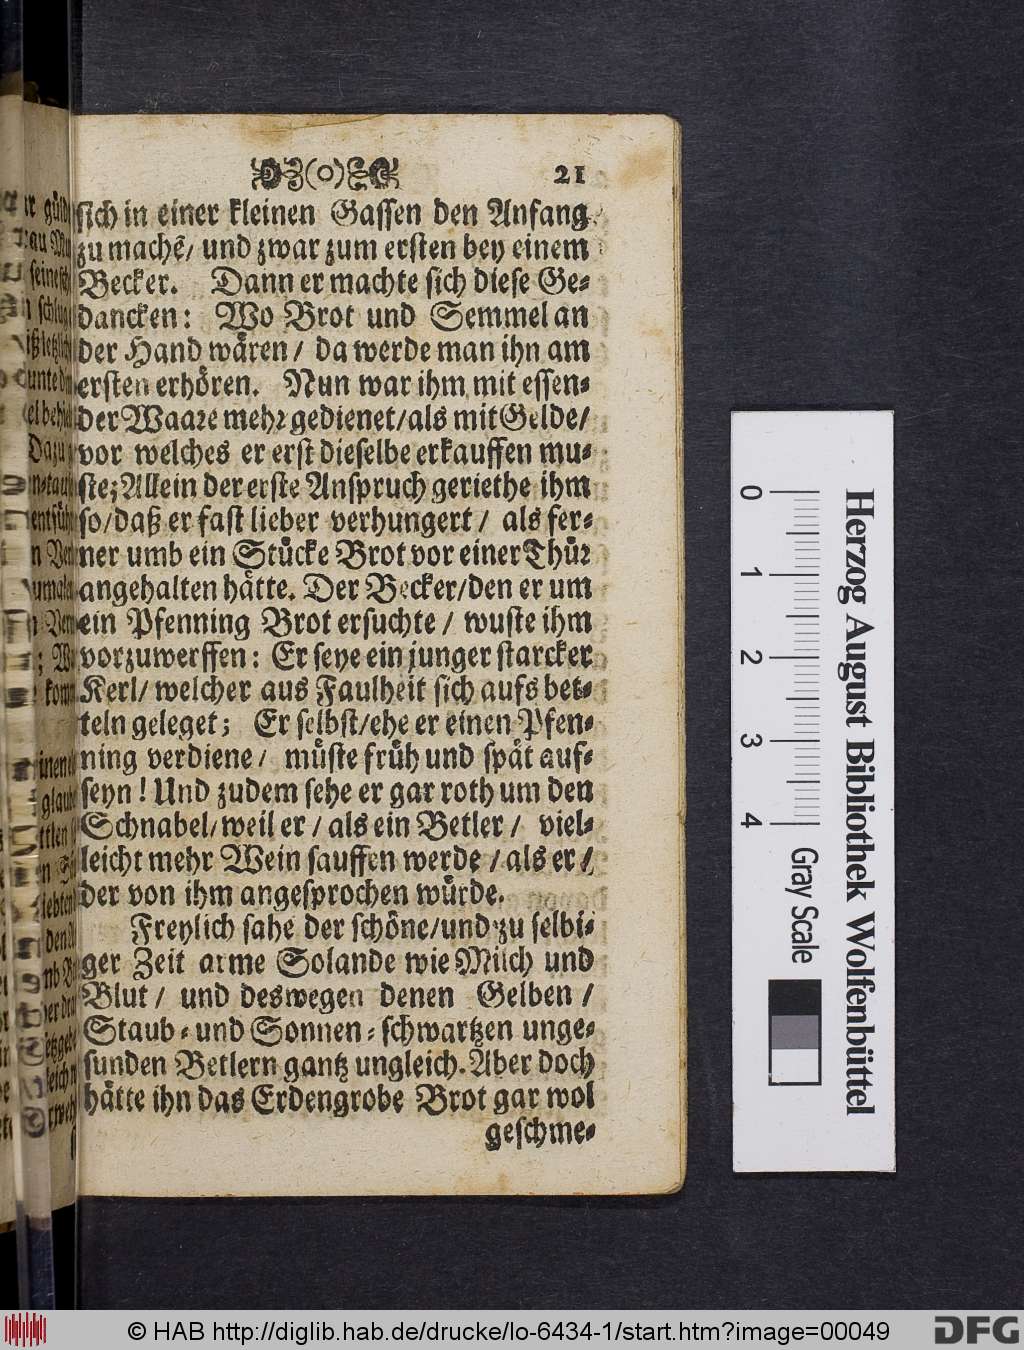 21
sich in einer kleinen Gassen den Anfang
zu machẽ/ und zwar zum ersten bey einem
Becker. Dann er machte sich diese Ge-
dancken: Wo Brot und Semmel an
der Hand wären/ da werde man ihn am
ersten erhören. Nun war ihm mit essen-
der Waare mehr gedienet/als mit Gelde/
vor welches er erst dieselbe erkauffen mu-
ste; Allein der erste Anspruch geriethe ihm
so/daß er fast lieber verhungert/ als fer-
ner umb ein Stücke Brot vor einer Thür
angehalten hätte. Der Becker/den er um
ein Pfenning Brot ersuchte/ wuste ihm
vorzuwerffen: Er seye ein junger starcker
Kerl/ welcher aus Faulheit sich aufs bet-
teln geleget; Er selbst/ehe er einen Pfen-
ning verdiene/ müste früh und spät auf-
seyn! Und zudem sehe er gar roth um den
Schnabel/weil er/ als ein Betler/ viel-
leicht mehr Wein sauffen werde/als er/
der von ihm angesprochen würde.
Freylich sahe der schöne/und zu selbi-
ger Zeit arme Solande wie Milch und
Blut/ und deswegen denen Gelben/
Staub- und Sonnen-schwartzen unge-
sunden Betlern gantz ungleich. Aber doch
hätte ihn das Erdengrobe Brot gar wol
geschme-
0
1
2
3
4
Gray Scale
Herzog August Bibliothek Wolfenbüttel
© HAB http://diglib.hab.de/drucke/lo-6434-1/start.htm?image=00049
DFG